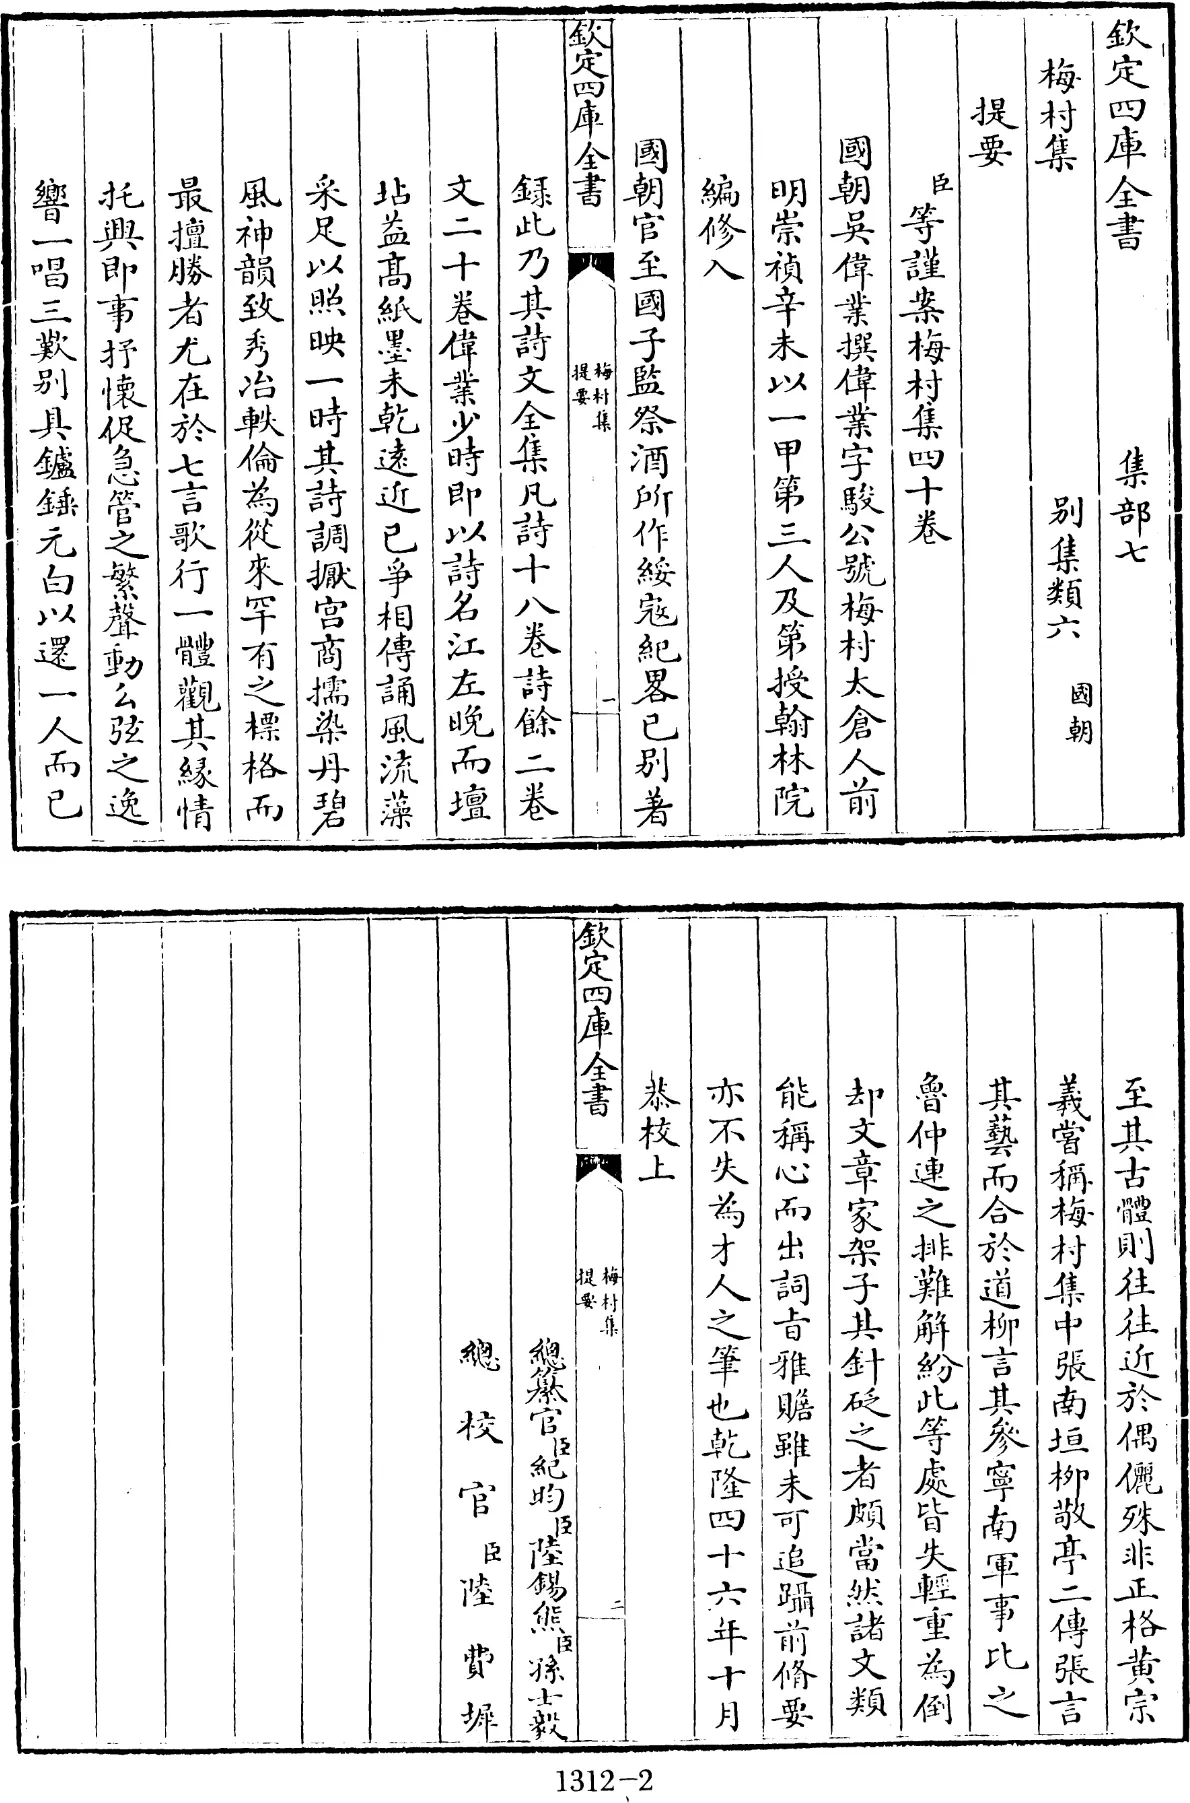 欽定四庫全書 集部七
梅村集 別集類六 國朝
提要
臣等謹案梅村集四十卷
國朝吳偉業撰偉業字駿公號梅村太倉人前
明崇禎辛未以一甲第三人及第授翰林院
編修入
國朝官至國子監祭酒所作綏寇紀畧已別著
欽定四庫全書
梅村集
提要
一
録此乃其詩文全集凡詩十八卷詩餘二卷
文二十卷偉業少時即以詩名江左晚而壇
坫益高紙墨未乾遠近已爭相傳誦風流藻
采足以照映一時其詩調撅宫商擩染丹碧
風神韻致秀冶軼倫為從來罕有之標格而
最擅勝者尤在於七言歌行一體觀其緣情
托興即事抒懷促急管之繁聲動么弦之逸
響一唱三歎别具鑪錘元白以還一人而已
至其古體則往往近於偶儷殊非正格黄宗
義嘗稱梅村集中張南垣柳敬亭二傳張言
其藝而合於道柳言其參寧南軍事比之
魯仲連之排難解紛此等處皆失輕重為倒
却文章家架子其針砭之者頗當然諸文類
能稱心而出詞旨雅贍雖未可追躡前脩要
亦不失為才人之筆也乾隆四十六年十月
恭校上
欽定四庫全書
梅村集
提要
二
總纂官臣紀昀臣陸錫熊臣孫士毅
總校官臣陸費墀
1312-2